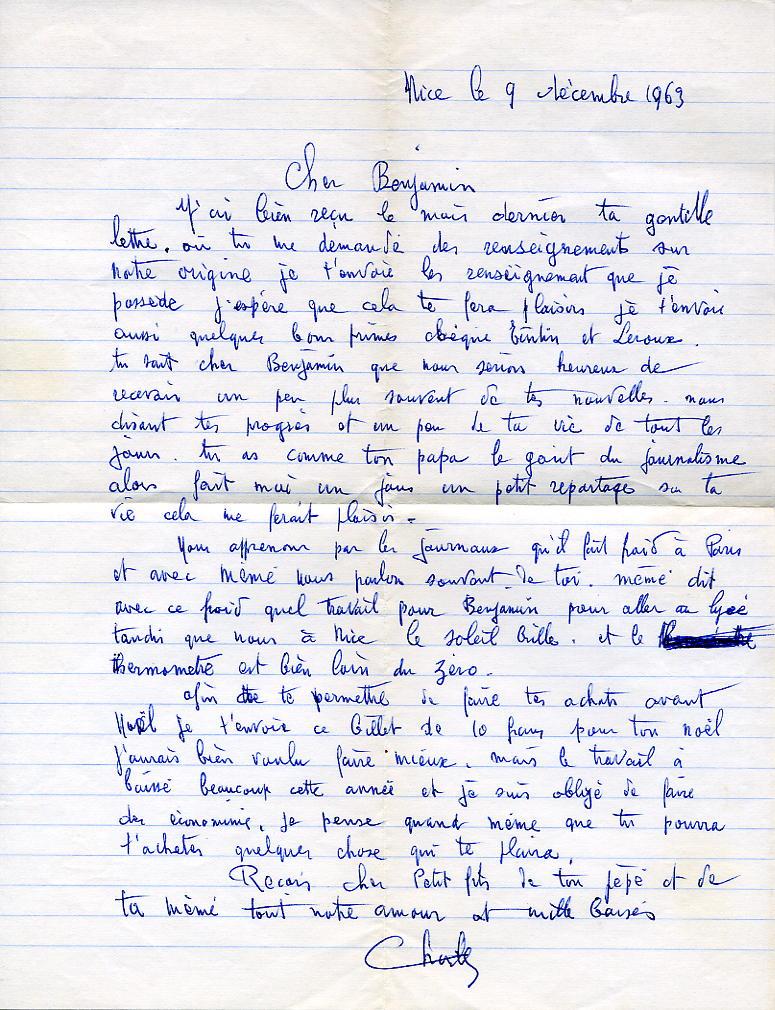 Nice le 9 décembre 1963
Cher Benjamin
J'ai bien reçu le mois dernier ta gentille
lettre. où tu me demande des renseignements sur
notre origine je t'envoie les renseignement que je
possède j'espère que cela te fera plaisirs je t'envoie
aussi quelques bons primes chèque tintin et Leroux.
tu sait cher Benjamin que nous serions heureux de
recevoir un peu plus souvent de tes nouvelles. nous
disant tes progrès et un peu de ta vie de tout les
jours. tu as comme ton papa le gout du journalisme
alors fait moi un jours un petit reportage sur ta
vie cela me ferait plaisir.
Nous apprenons par les journaux qu'il fait froid à Paris
et avec mémé nous parlons souvent de toi. mémé dit
avec ce froid quel travail pour Benjamin pour aller au lycée
tandis que nous à Nice le soleil brille. et le
thermometre est bien loin du zéro.
afin de te permettre de faire tes achats avant
Noël je t'envoie ce billet de 10 francs pour ton noël
j'aurais bien voulu faire mieux. mais le travail à
baissé beaucoup cette année et je suis obligé de faire
des économie. je pense quand même que tu pourra
t'acheter quelques chose qui te plaira.
Reçois cher Petit fils de ton pépé et de
ta mémé tout notre amour et mille baisés
Charles